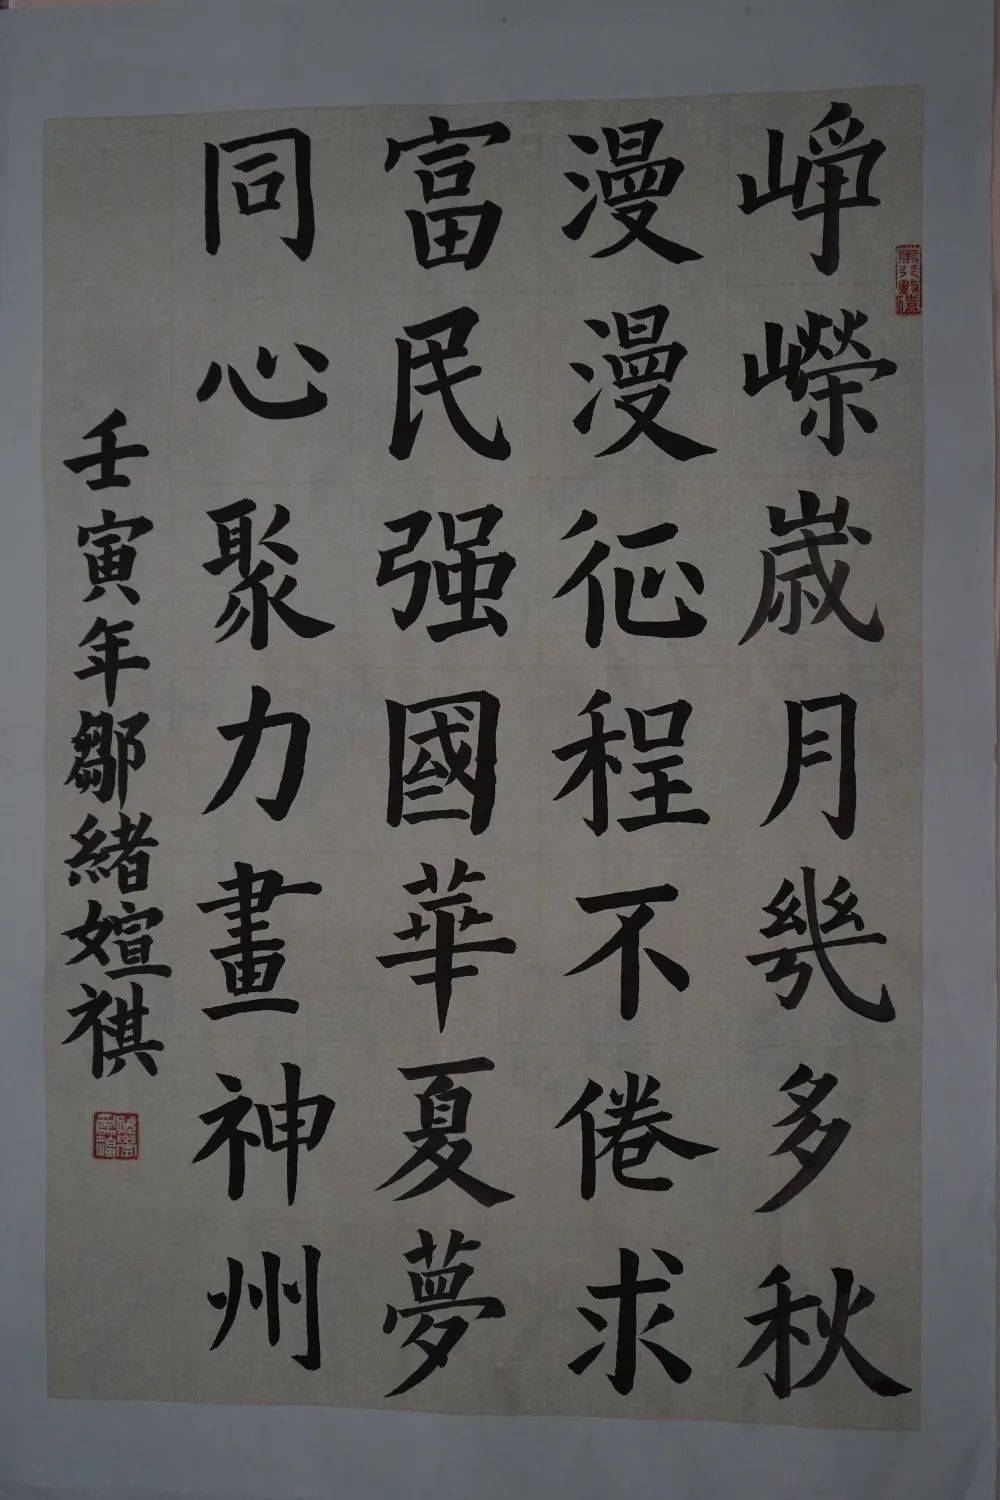 崢嶸歲月幾多秋
漫漫征程不倦求
富民强國華夏夢
同心聚力畫神州
壬寅年鄒緒媗祺